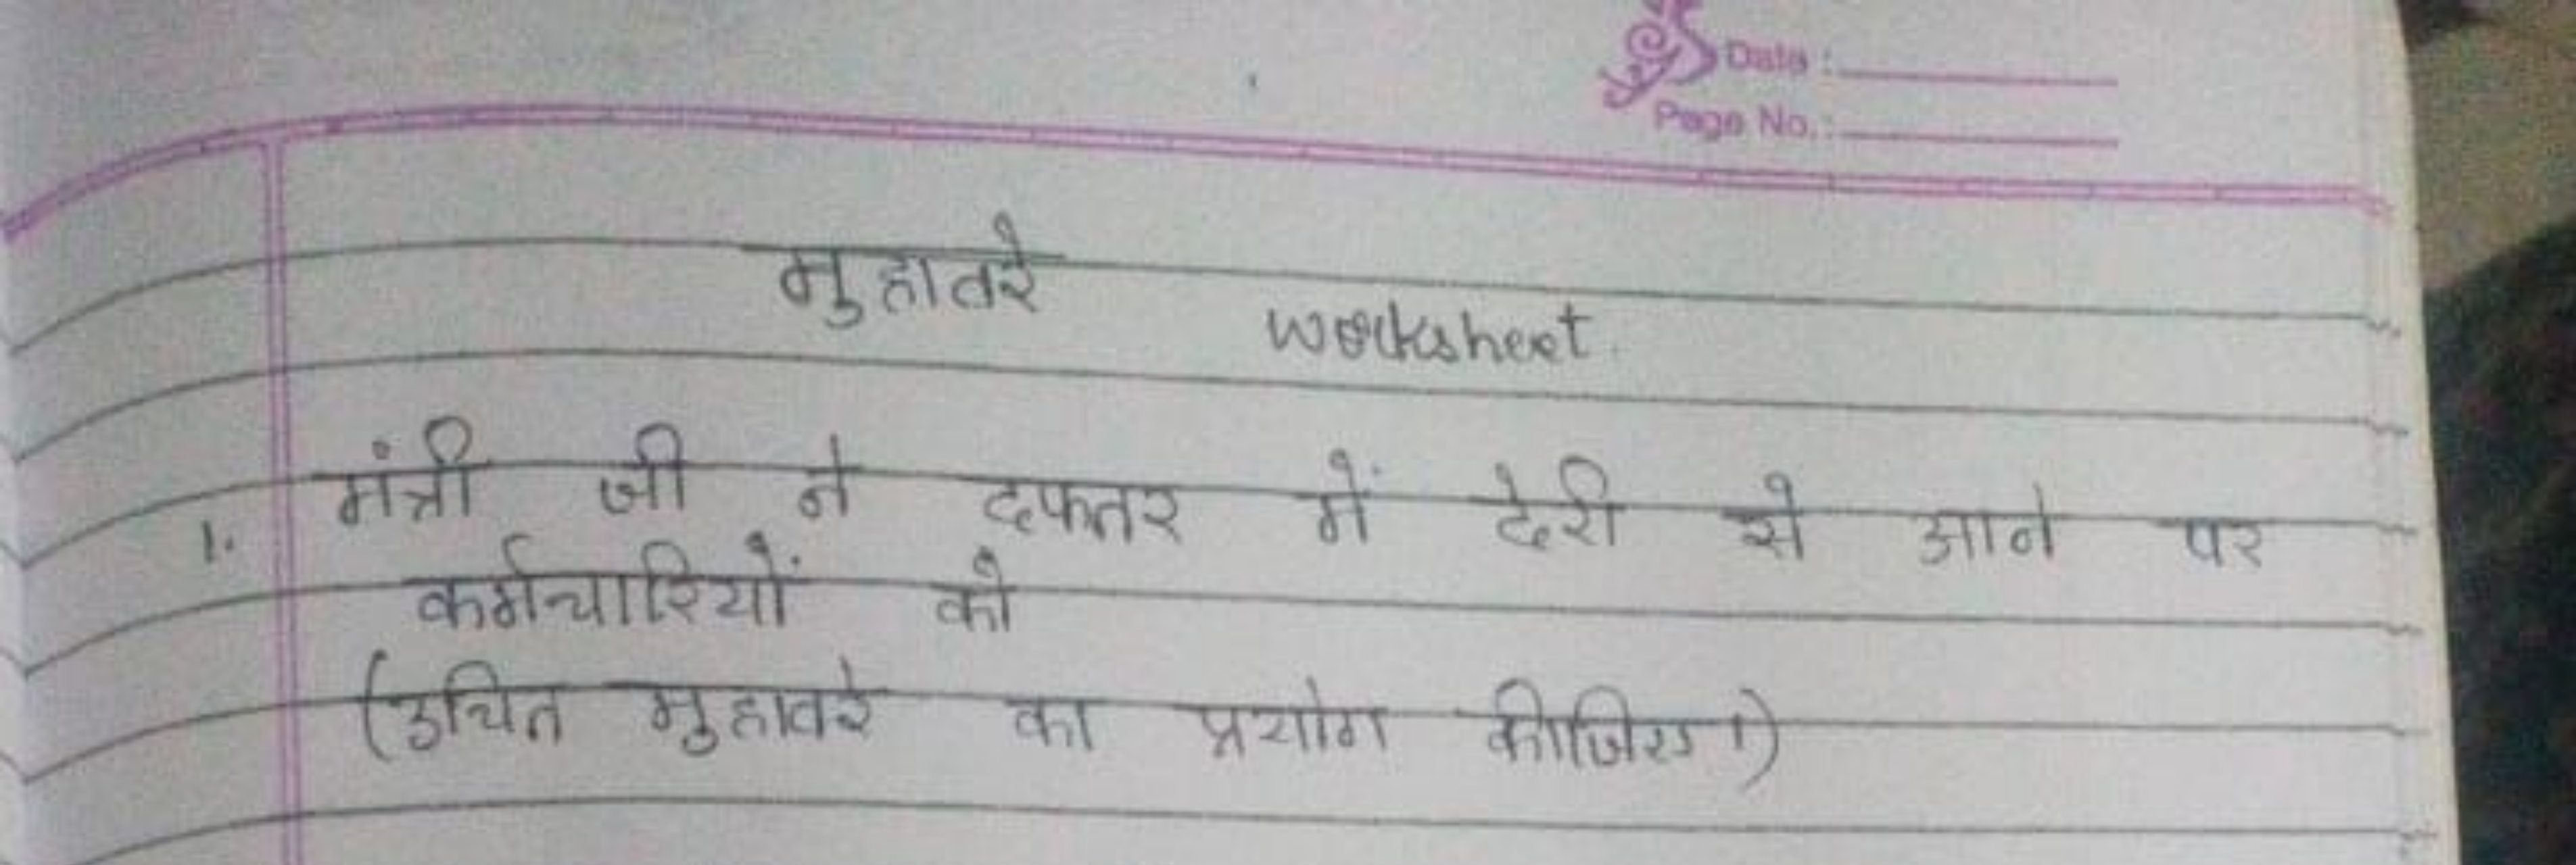 Date :
Page No. :
मुहावरे
worksheet
1. मंत्री जी ने दफ्तर में देरी से आने पर
कर्मचारियों को
(उचित मुहावरे का प्रयोग कीजिए।)